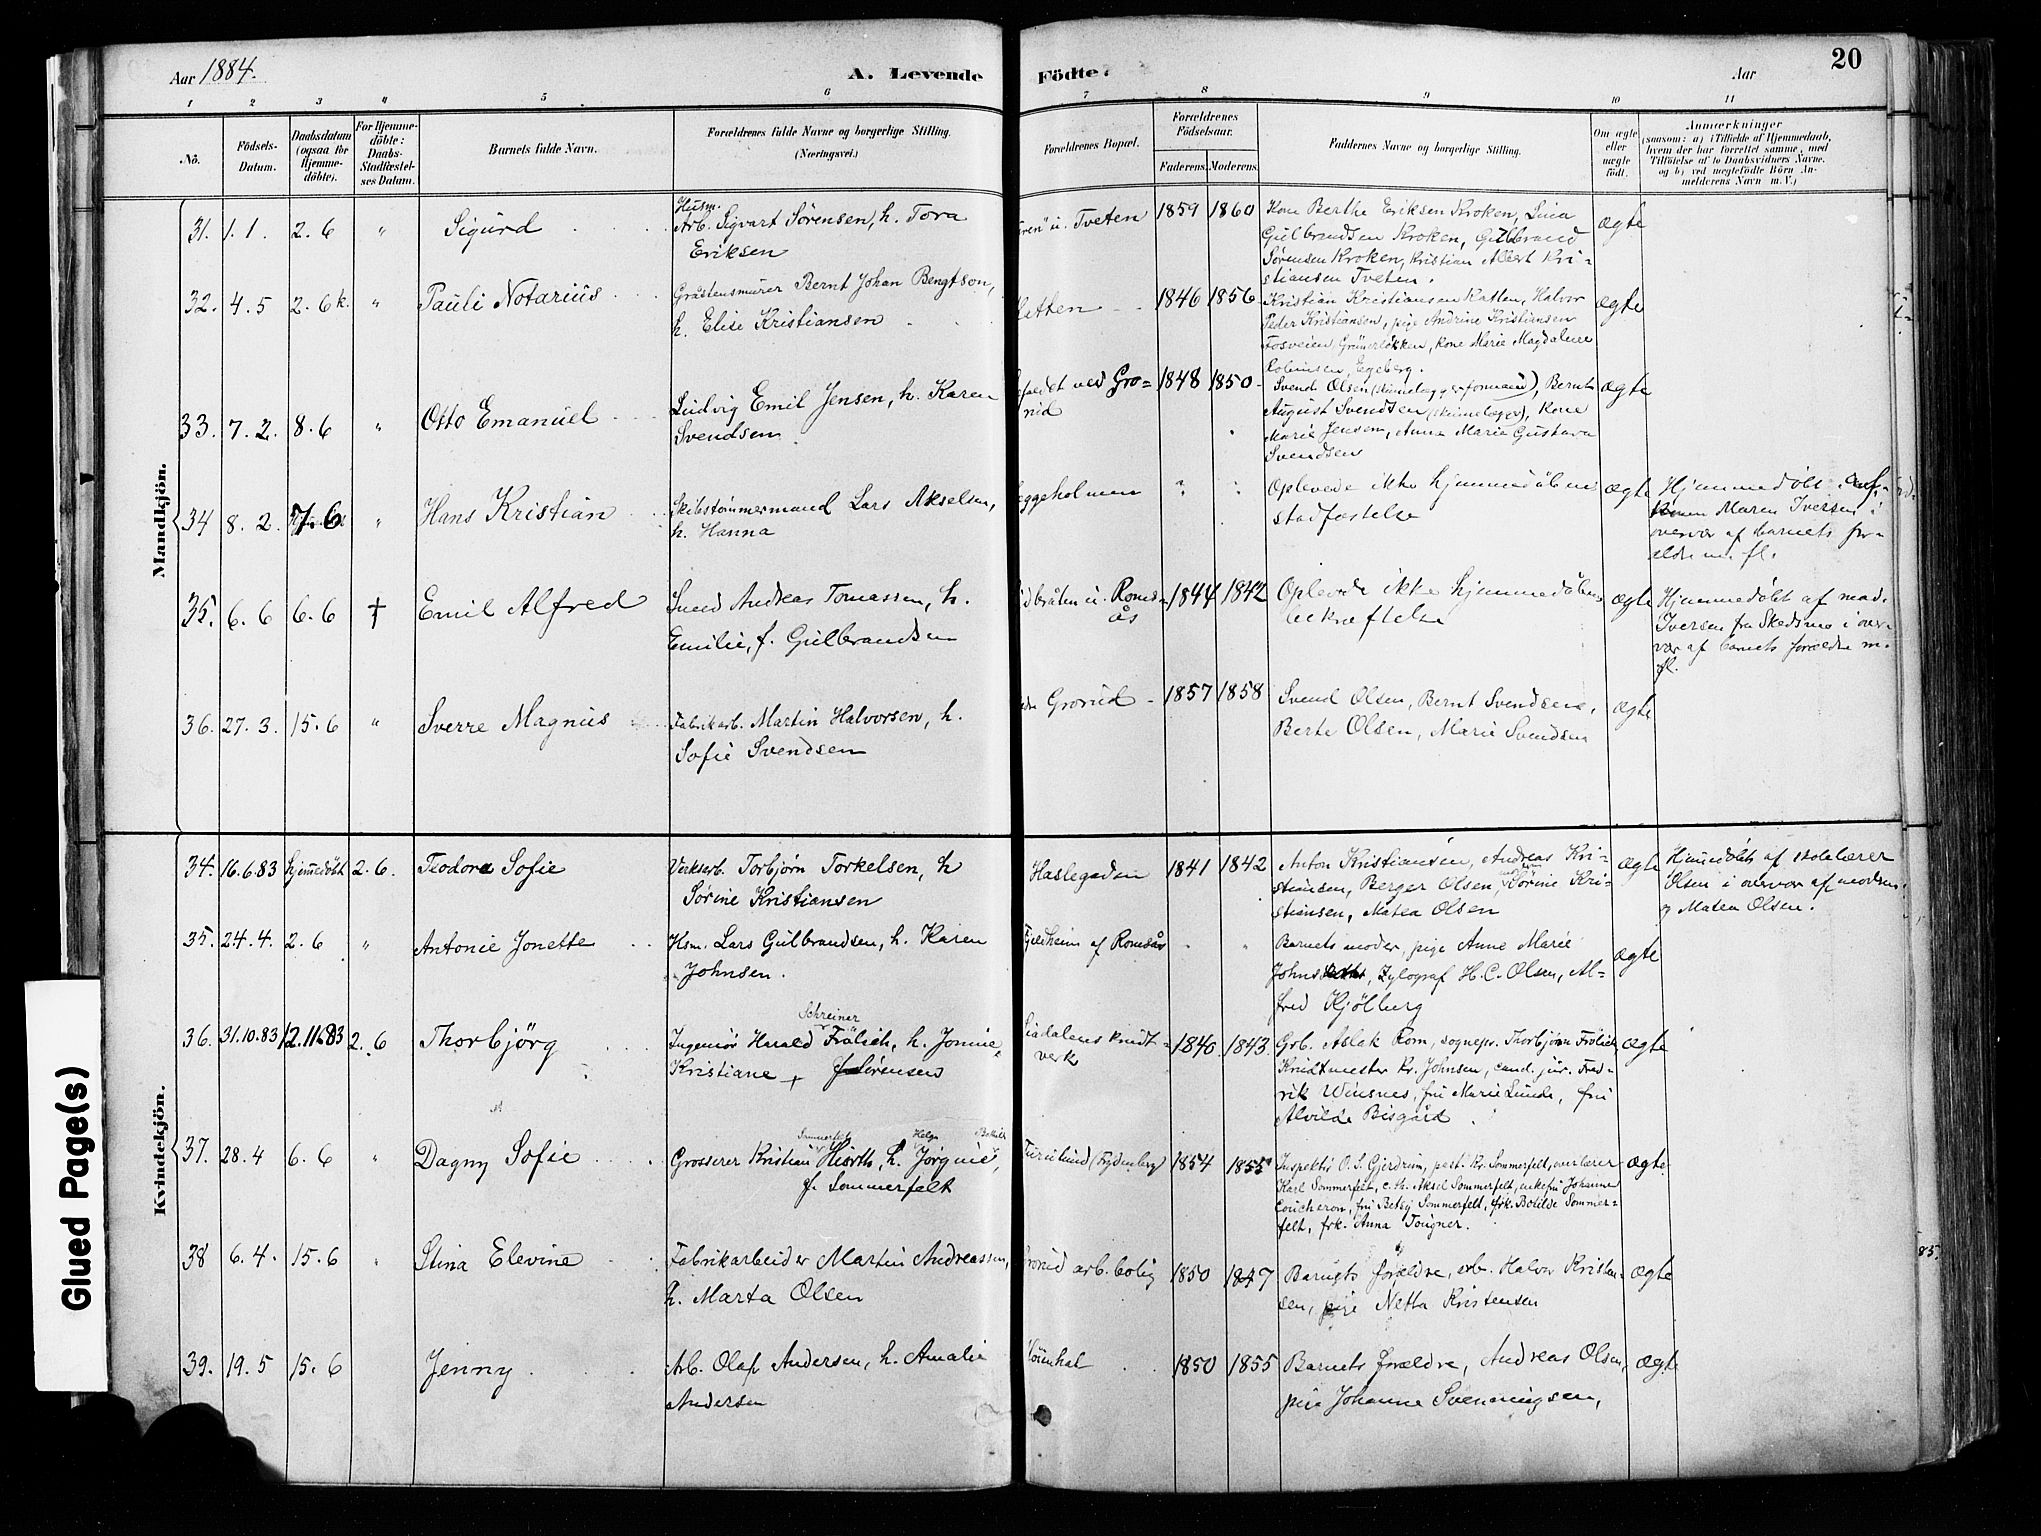 Aar 1884.
A. Levende
Födte.
Aar
20
1 2 3 4 5 6 7 8 9 10 11
No.
Födsels-
Datum.
Daabsdatum
(ogsaa for
Hjemme-
döbte).
For Hjemme-
döbte:
Daabs-
Stadfæstel-
ses Datum.
Barnets fulde Navn.
Forældrenes fulde Navne og borgerlige Stilling.
(Næringsvei.)
Forældrenes Bopæl.
Forældrenes
Födselsaar.
Faderens. Moderens.
Faddernes Navne og borgerlige Stilling.
Om ægte
eller
uægte
födt.
Anmærkninger
(saasom: a) i Tilfælde af Hjemmedaab,
hvem der har forrettet samme, med
Tilföielse af to Daabsvidners Navne.
og b) ved uægtefödte Börn An-
melderens Navn m. V.)
Mandkjön.
31. 1.1. 2.6 " Sigurd
Husm.
Arb. Sigvart Sørensen, h. Tora
Eriksen
u. Tveten 1859 1860
Kone Berthe Eriksen Kroken, Lina
Gulbrandsen Kroken, Gulbrand
Sørensen Kroken, Kristian Albert Kri-
stiansen Tveten.
ægte
32. 4.5 2.6 k. " Pauli Notarius
Gråstensmurer Bernt Johan Bengtson,
h. Elise Kristiansen
1846 1856
Kristian Kristiansen Katten, Halvor
Peder Kristiansen, pige Andrine Kristiansen
Fosveien, Grünerløkken, kone Marie Magdalene
Egeberg.
ægte
33. 7.2. 8.6 " Otto Emanuel
Ludvig Emil Jensen, h. Karen
Svendsen
ved Gro-
rud
1848 1850
Svend Olsen (skinnelæggerformand), Bernt
August Svendsen (skinnelægger), Kone
Marie Jensen, Anna Marie Gustava
Svendsen
ægte
34 8.2. 7.6 " Hans Kristian
Skibstømmermand Lars Akselsen,
h. Hanna
eggeholmen
Oplevede ikke hjemmedåbens
stadfæstelse
ægte
Hjemmedøbt af
Maren Iversen i
overvær af barnets for-
ældre m. fl.
35. 6.6 6.6 † Emil Alfred
Svend Andreas Tomassen, h.
Emilie, f. Gulbrandsen
bråten u. Roms-
ås
1844 1842
Oplevede ikke hjemmedåbens
bekræftelse
ægte
Hjemmedøbt af mad.
Iversen fra Skedsmo i over-
vær af barnets forældre m.
fl.
36. 27.3. 15.6 " Sverre Magnus
Fabrikarb. Martin Halvorsen, h.
Sofie Svendsen
Grorud 1857 1858
Svend Olsen, Bernt Svendsen,
Berte Olsen, Marie Svendsen
ægte
Kvindekjön.
34. 16.6.83 hjemmedøbt 2.6. Teodora Sofie
Verksarb. Torbjørn Torkelsen, h
Sørine Kristiansen
Haslegaden 1841 1842
Anton Kristiansen, Andreas Kri-
stiansen, Berger Olsen, Sørine Kri-
stiansen, Matea Olsen
ægte
Hjemmedøbt af skolelærer
Olsen i overvær af moderen
og Matea Olsen.
35. 24.4. 2.6 " Antonie Jonette
Hsm. Lars Gulbrandsen, h. Karen
Johnsen.
Fjeldheim af Romsås " "
Barnets moder, pige Anne Marie
Johns, Xylograf H. C. Olsen, Al-
fred Kjølberg
ægte
36. 31.10.83 12.11.83 2.6 Thorbjörg
Schreiner
Ingeniør Harald Frölich, h. Jonine
Kristiane f. Sørensen
Liadalens krudt-
verk
1840 1843
Grb. Aslak Rom, sognepr. Thorbjørn Frölich,
Krudtmester Kr. Johnsen, cand. jur. Fred-
rik Winsnes, fru Marie Lunde, fru
Alvilde Bisgård
ægte
37. 28.4 6.6 " Dagny Sofie
Sommerfelt Helga Bothilde
Grosserer Kristian Hiorth, h. Jørgine,
f. Sommerfelt
(Frydenberg) 1854 1855
Inspektör O. S. Gjerdrum, past. Kr. Sommerfelt, overlærer
Karl Sommerfelt, c. th. Aksel Sommerfelt, enkefru Johanne
Coucheron, fru Betsy Sommerfelt, frk. Botilde Sommer-
felt, frk. Anna Tougner.
ægte
38 6.4. 15.6 " Stina Elevine
Fabrikarbeider Martin Andreassen,
h. Marta Olsen
Grorud arb.bolig 1850 1847
Barnets forældre, arb. Halvor Kristen-
sen, pige Netta Kristensen
ægte
39. 19.5 15.6 Jenny
Arb. Olaf Andersen, h. Amalie
Andersen
1850 1855
Barnets forældre, Andreas Olsen,
pige Johanne Svenningsen,
ægte
85.
Glued Page(s)